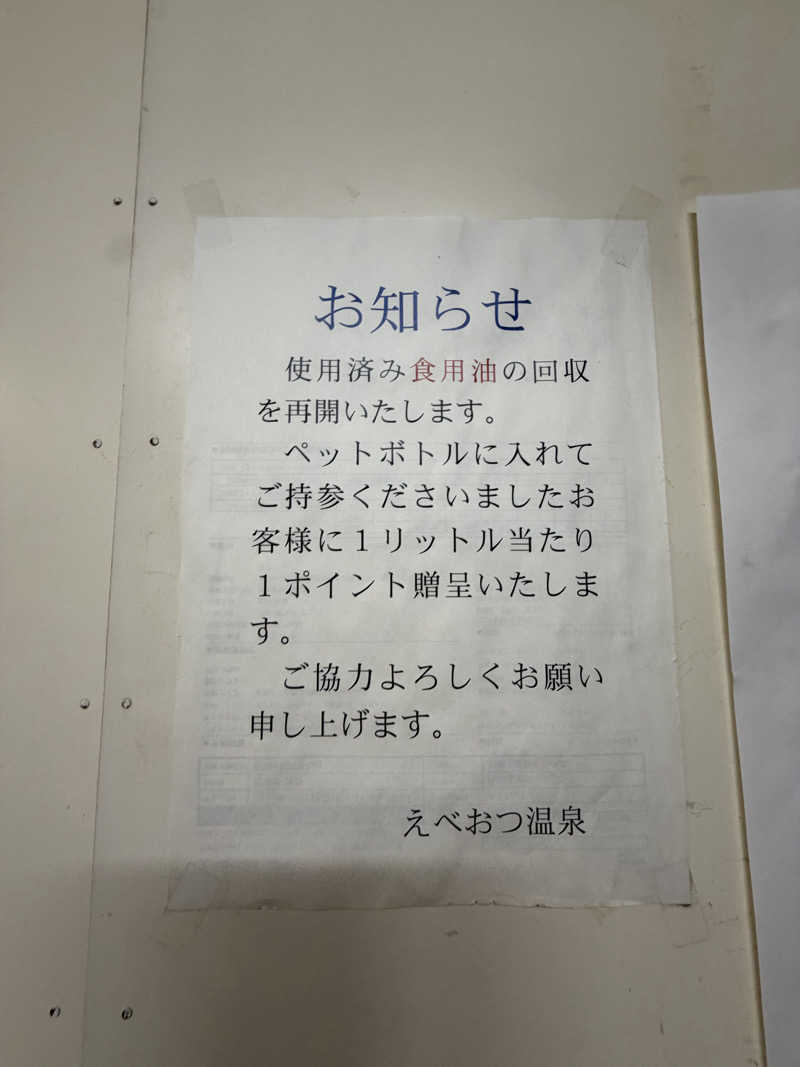 お知らせ
使用済み食用油の回収
を再開いたします。
ペットボトルに入れて
ご持参くださいましたお
客様に１リットル当たり
１ポイント贈呈いたしま
す。
ご協力よろしくお願い
申し上げます。
えべおつ温泉